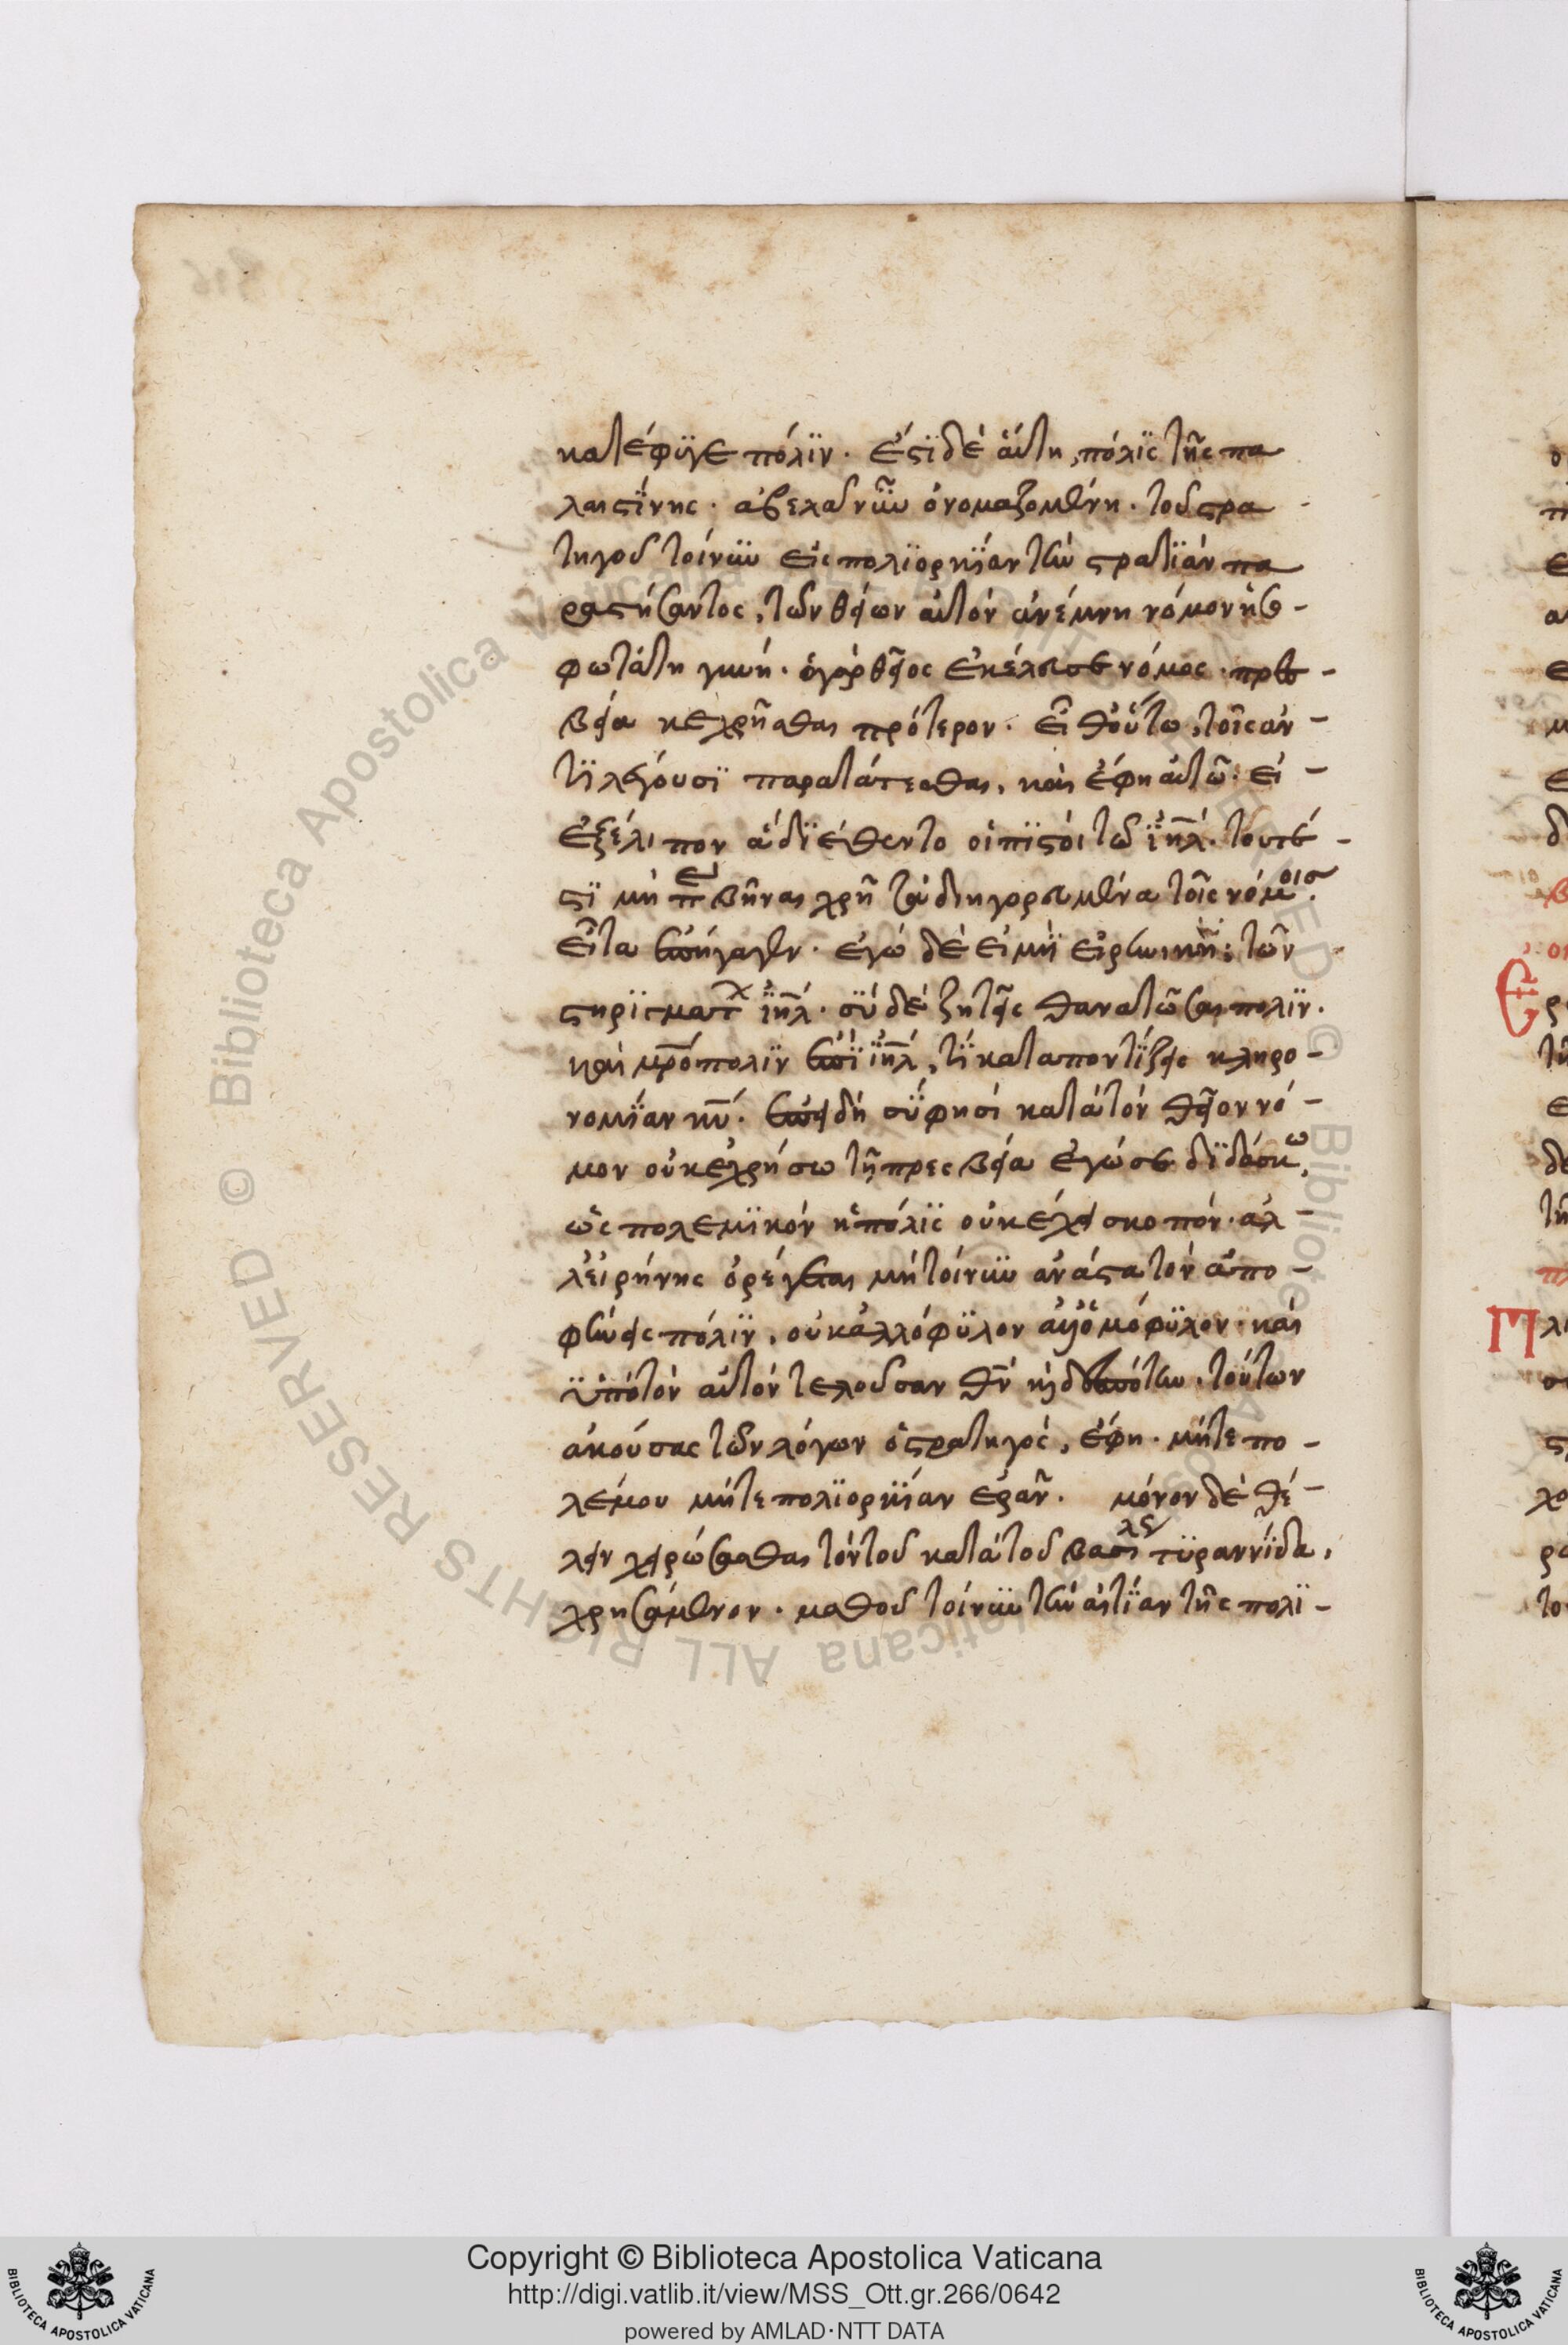 κατέφϋγε πόλϊν. ἐστϊ δὲ ἁύτη, πόλϊς τῆς πα
λαιστϊνης. ἀβελαδνῶν ὀνομαζομένη. τοῦ στρα
τηγοῦ τοίνϋν εἰς πολϊορκϊαν τὴν στρατϊὰν πα
ραστήσαντος, τῶν θείων αὐτὸν ἀνέμνη νόμον ἡ σο-
φωτάτη γυνή. ὁ γὰρ θεῖος ἐκέλευσε νόμος. πρεσ-
βεία κεχρῆσθαι πρότερον. εἶθ οὕτω, τοῖς ἀν-
τϊλεγόυσϊ παρατάττεσθαι, και ἔφη αὐτῶ. εἰ-
ἐξέλιπον ἃ δϊέθεντο οἱ πϊστοὶ τῶ ϊηλ. τουτέ-
στϊ μὴ π βῆναι χρῆ τὰ διηγορευμένα τοῖς νόμοις.
εἶτα ἐπήγαγεν. ἐγώ δὲ εἰμϊ εἰρηνικὴ: τῶν
στηρϊσματ ϊηλ. σϋ δὲ ζητεῖς θανατῶσαι πολϊν.
καὶ μρόπολϊν ἐπϊ ϊηλ, τϊ καταποντϊζεις κληρο-
νομϊαν κυ. ἐπειδὴ σϋ φησὶ κατὰ τὸν θεῖον νό-
μον οὐκ ἐχρήσω τῆ πρεσβεία ἐγώ σε δϊδάσκω,
ὡς πολεμϊκὸν ἡ πόλϊς οὐκ ἔχει σκοπόν. ἀλ-
λ' εἰρήνης ὀρέγεται μὴ τοίνϋν ἀνάστατον ἀπο-
φήνεις πόλϊν, οὐκ ἀλλόφϋλον ἀλλ ὁμόφϋλον. και
ϋπὸ τὸν αὐτὸν τελοῦσαν θν κ δεσπότην. τούτων
ἀκούσας τῶν λόγων ὁ στρατηγὸς, ἔφη. μήτε πο-
λέμου μήτε πολϊορκϊαν ἐρᾶν. μόνον δὲ θέ-
λειν χειρώσασθαι τὸν τοῦ κατὰ τοῦ βασιλέως τϋραννϊδα,
χρησάμενον. μαθοῦ τοίνϋν τὴν αἰτϊαν τῆς πολϊ-
Copyright © Biblioteca Apostolica Vaticana
http://digi.vatlib.it/view/MSS_Ott.gr.266/0642
powered by AMLAD·NTT DATA